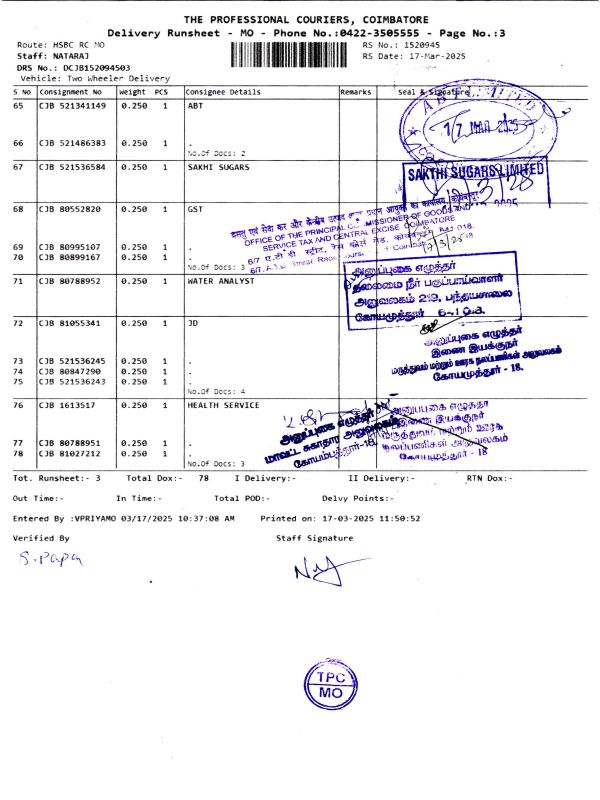 THE PROFESSIONAL COURIERS, COIMBATORE
Delivery Runsheet - MO - Phone No.:0422-3505555 - Page No.:3
Route: HSBC RC MO
RS No.: 1520945
Staff: NATARAJ
RS Date: 17-Mar-2025
DRS No.: DCJB152094503
Vehicle: Two Wheeler Delivery
S No Consignment No Weight PCS Consignee Details Remarks Seal & Signature
65 CJB 521341149 0.250 1 ABT
ABT LIMITED
17 MAR 2025
66 CJB 521486383 0.250 1 .
No.Of Docs: 2
67 CJB 521536584 0.250 1 SAKHI SUGARS
SAKTHI SUGARS LIMITED
68 CJB 80552820 0.250 1 GST
OFFICE OF THE PRINCIPAL COMMISSIONER OF GOODS AND
SERVICE TAX AND CENTRAL EXCISE COIMBATORE
69 CJB 80995107 0.250 1 .
70 CJB 80899167 0.250 1 .
No.Of Docs: 3
71 CJB 80788952 0.250 1 WATER ANALYST
அனுப்புகை எழுத்தர்
தலைமை நீர் பகுப்பாய்வாளர்
அலுவலகம் 219, பந்தயசாலை
கோயமுத்தூர்
72 CJB 81055341 0.250 1 JD
அனுப்புகை எழுத்தர்
இணை இயக்குநர்
மருத்துவம் மற்றும் ஊரக நலப்பணிகள் அலுவலகம்
கோயமுத்தூர் - 18.
73 CJB 521536245 0.250 1 .
74 CJB 80847290 0.250 1 .
75 CJB 521536243 0.250 1 .
No.Of Docs: 4
76 CJB 1613517 0.250 1 HEALTH SERVICE
அனுப்புகை எழுத்தர்
மாவட்ட சுகாதார அலுவலகம்
கோயம்புத்தூர்-18
அனுப்புகை எழுத்தர்
இணை இயக்குநர்
மருத்துவம் மற்றும் ஊரக
நலப்பணிகள் அலுவலகம்
கோயமுத்தூர் - 18
77 CJB 80788951 0.250 1 .
78 CJB 81027212 0.250 1 .
No.Of Docs: 3
Tot. Runsheet:- 3 Total Dox:- 78 I Delivery:- II Delivery:- RTN Dox:-
Out Time:- In Time:- Total POD:- Delvy Points:-
Entered By :VPRIYAMO 03/17/2025 10:37:08 AM Printed on: 17-03-2025 11:50:52
Verified By Staff Signature
S. Papa
TPC
MO